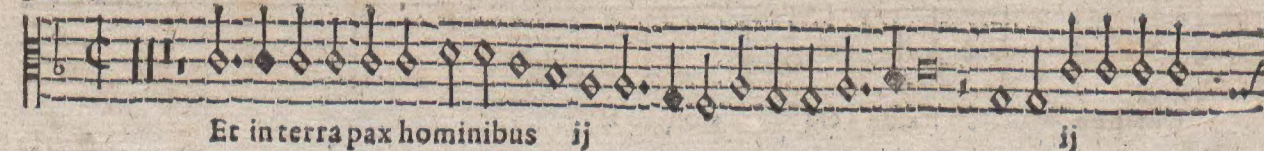 Et in terra pax hominibus ij ij